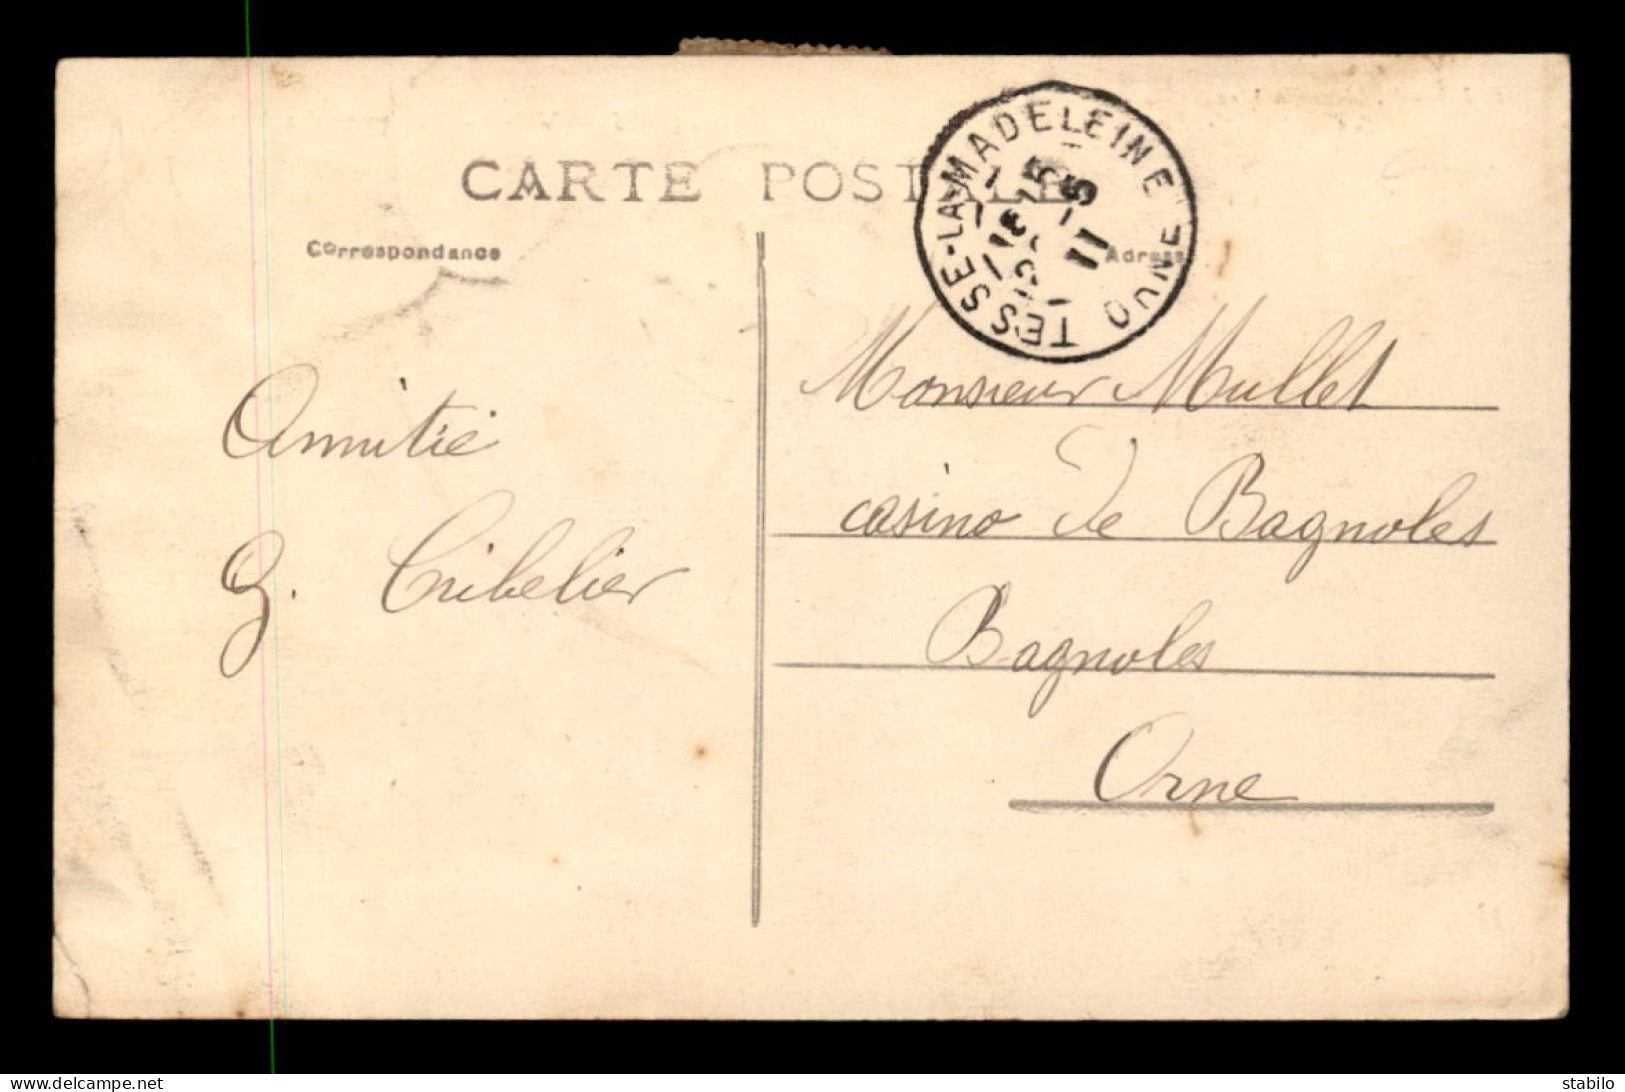 CARTE POSTALE
Correspondance
Adresse
TESSE-LA-MADELEINE ORNE
16 15
5
11
Amitié
G. Cribelier
Monsieur Mullet
casino de Bagnoles
Bagnoles
Orne
stabilo